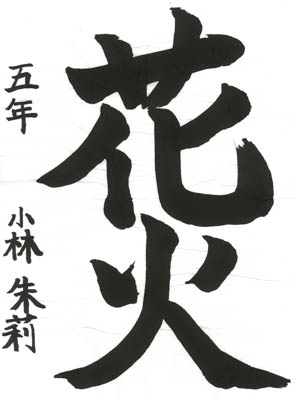 花火
五年
小林朱莉